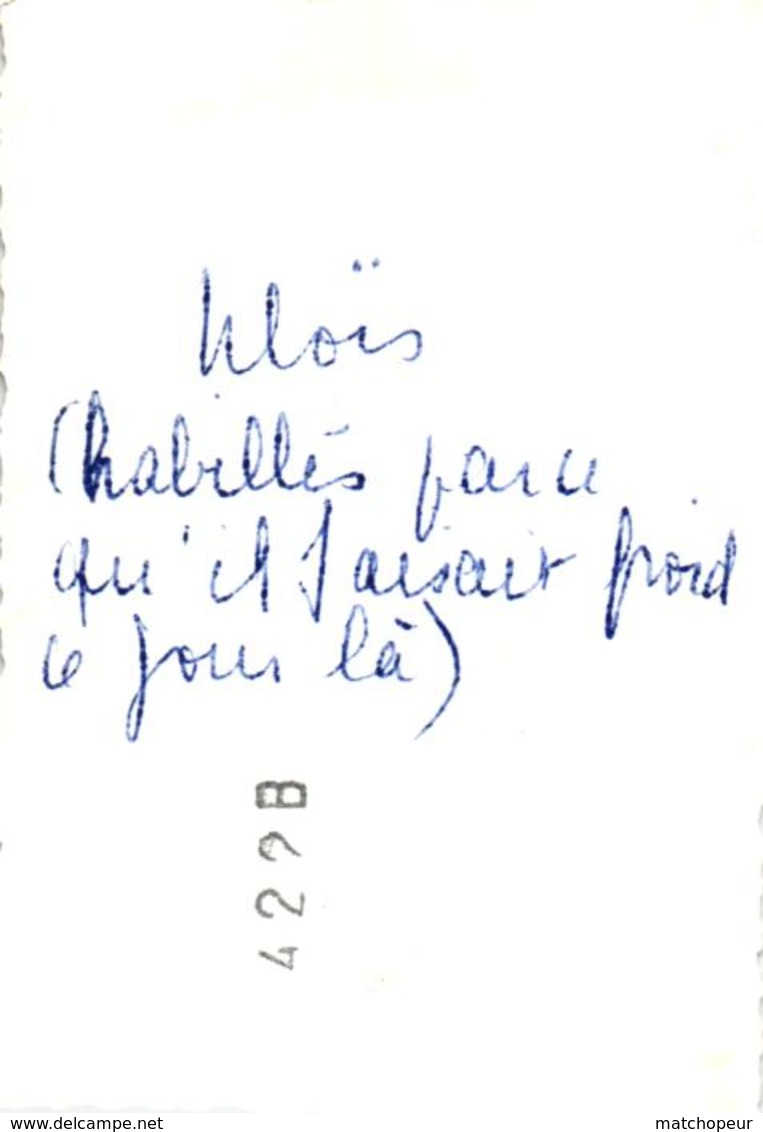 (habillés parce
qu'il faisait froid
ce jour là)
422B
www.delcampe.net
matchopeur